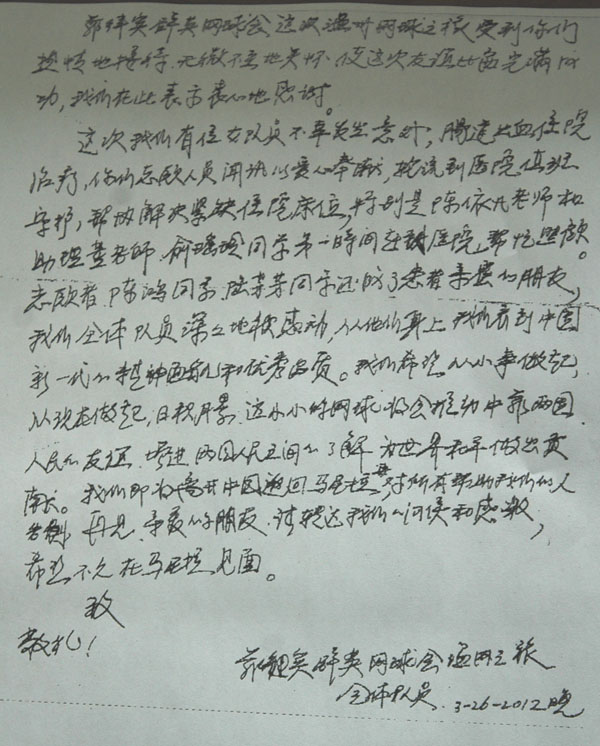 菲律宾辉煌网球会 这次温州网球之旅 受到你们
热情地接待，无微不至地关怀，使这次友谊比赛完满成
功，我们在此表示衷心地感谢。
这次我们有位女队员不幸发生意外，肠道出血住院
治疗，你们志愿人员闻讯以爱心奉献，轮流到医院值班
守护，帮助解决紧缺住院床位，特别是陈依凡老师和
助理董老师、俞瑶瑶同学第一时间在医院帮忙照顾。
志愿者 陈鸿同学、陆 同学还成了患者亲密的朋友，
我们全体队员深深地被感动，从他们身上我们看到中国
新一代的精神面貌和优秀品质。我们希望从小事做起，
从现在做起，日积月累，这小小的网球将会推动中菲两国
人民的友谊，增进两国人民之间的了解，为世界和平做出贡
献。我们即将离开中国返回马尼拉，对所有帮助我们的人
告别，再见，亲爱的朋友，请转达我们的问候和感激，
希望不久在马尼拉见面。
致
敬礼！
菲律宾辉煌网球会温网之旅
全体队员 3-26-2012晚